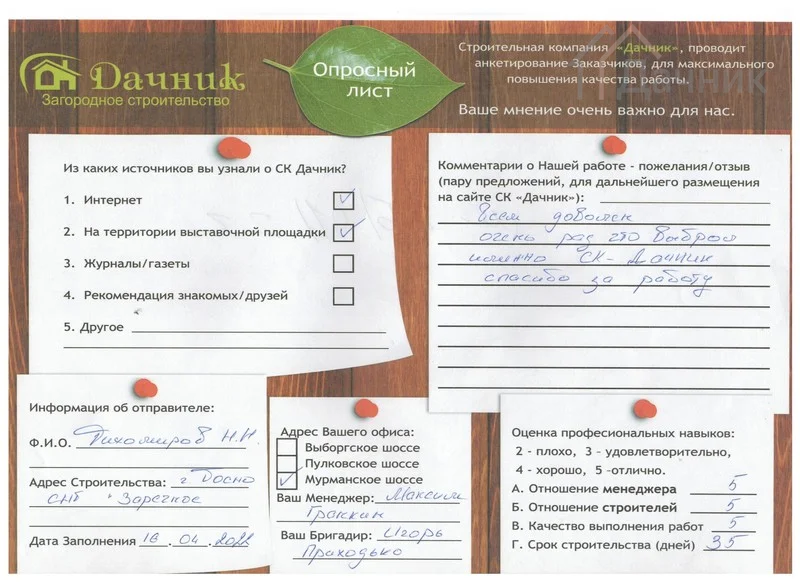 Дачник
Загородное строительство
Опросный
лист
Строительная компания «Дачник», проводит
анкетирование Заказчиков, для максимального
повышения качества работы.
Ваше мнение очень важно для нас.
Дачник
Из каких источников вы узнали о СК Дачник?
1. Интернет
2. На территории выставочной площадки
3. Журналы/газеты
4. Рекомендация знакомых/друзей
5. Другое
Комментарии о Нашей работе - пожелания/отзыв
(пару предложений, для дальнейшего размещения
на сайте СК «Дачник»):
Всем доволен
очень рад что выбрал
именно СК-Дачник
спасибо за работу
Информация об отправителе:
Ф.И.О. Тихомиров Н.Н.
Адрес Строительства: г
СНТ Заречное
Дата Заполнения 16.04.2022
Адрес Вашего офиса:
Выборгское шоссе
Пулковское шоссе
Мурманское шоссе
Ваш Менеджер: Максим
Ваш Бригадир: Игорь
Приходько
Оценка професиональных навыков:
2 - плохо, 3 - удовлетворительно,
4 - хорошо, 5 -отлично.
А. Отношение менеджера 5
Б. Отношение строителей 5
В. Качество выполнения работ 5
Г. Срок строительства (дней) 35